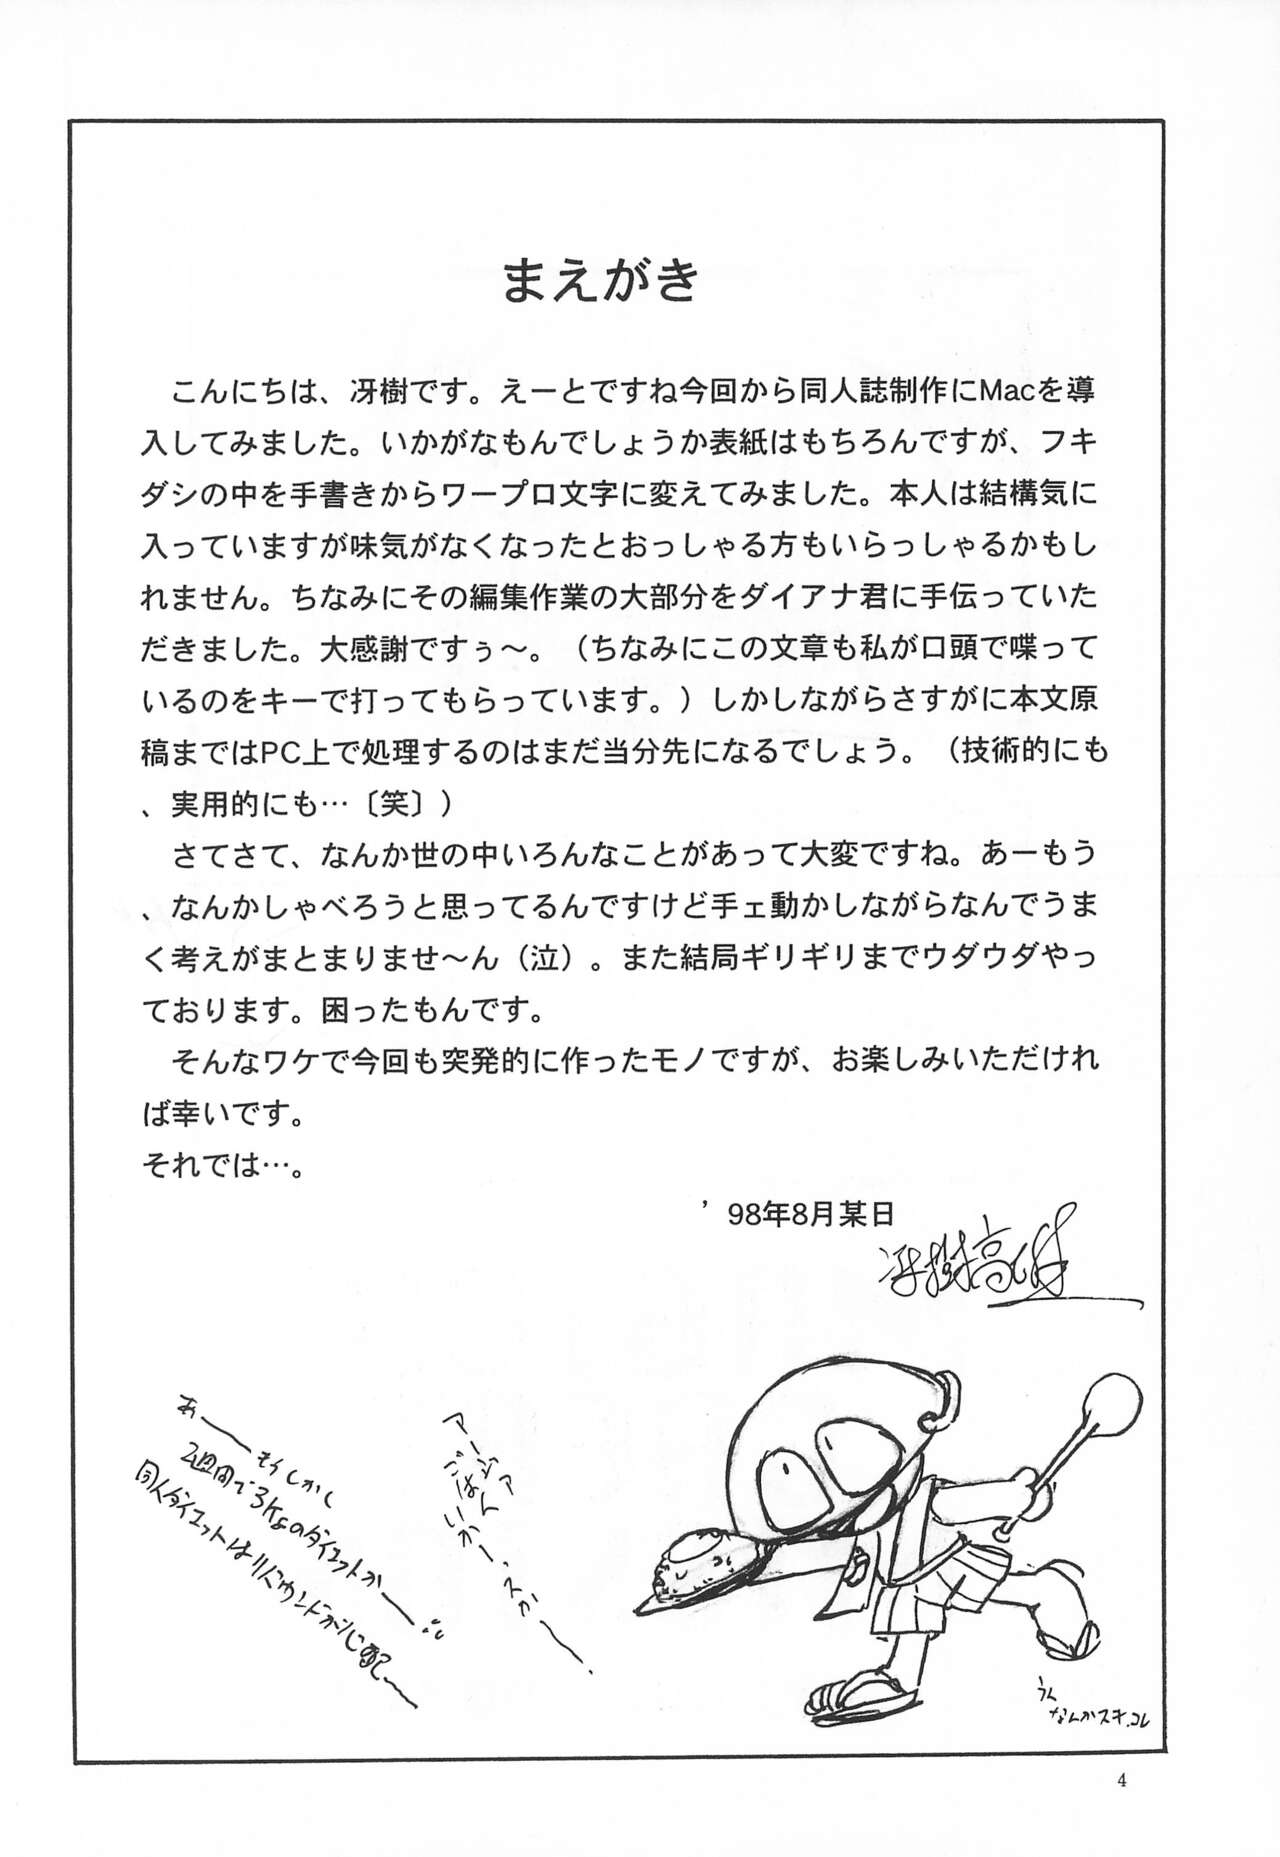 まえがき
　こんにちは、冴樹です。えーとですね今回から同人誌制作にMacを導
入してみました。いかがなもんでしょうか表紙はもちろんですが、フキ
ダシの中を手書きからワープロ文字に変えてみました。本人は結構気に
入っていますが味気がなくなったとおっしゃる方もいらっしゃるかもし
れません。ちなみにその編集作業の大部分をダイアナ君に手伝っていた
だきました。大感謝ですぅ〜。（ちなみにこの文章も私が口頭で喋って
いるのをキーで打ってもらっています。）しかしながらさすがに本文原
稿まではPC上で処理するのはまだ当分先になるでしょう。（技術的にも
、実用的にも…〔笑〕）
　さてさて、なんか世の中いろんなことがあって大変ですね。あーもう
、なんかしゃべろうと思ってるんですけど手ェ動かしながらなんでうま
く考えがまとまりませ〜ん（泣）。また結局ギリギリまでウダウダやっ
ております。困ったもんです。
　そんなワケで今回も突発的に作ったモノですが、お楽しみいただけれ
ば幸いです。
それでは…。
’98年8月某日
冴樹高雄
アージャア
ごはん
いかーースかー．
あーーもしかして
2週間で3kgのダイエットかーー
同人ダイエットはリバウンドが心配ーー
うん
なんかスキ．コレ
4